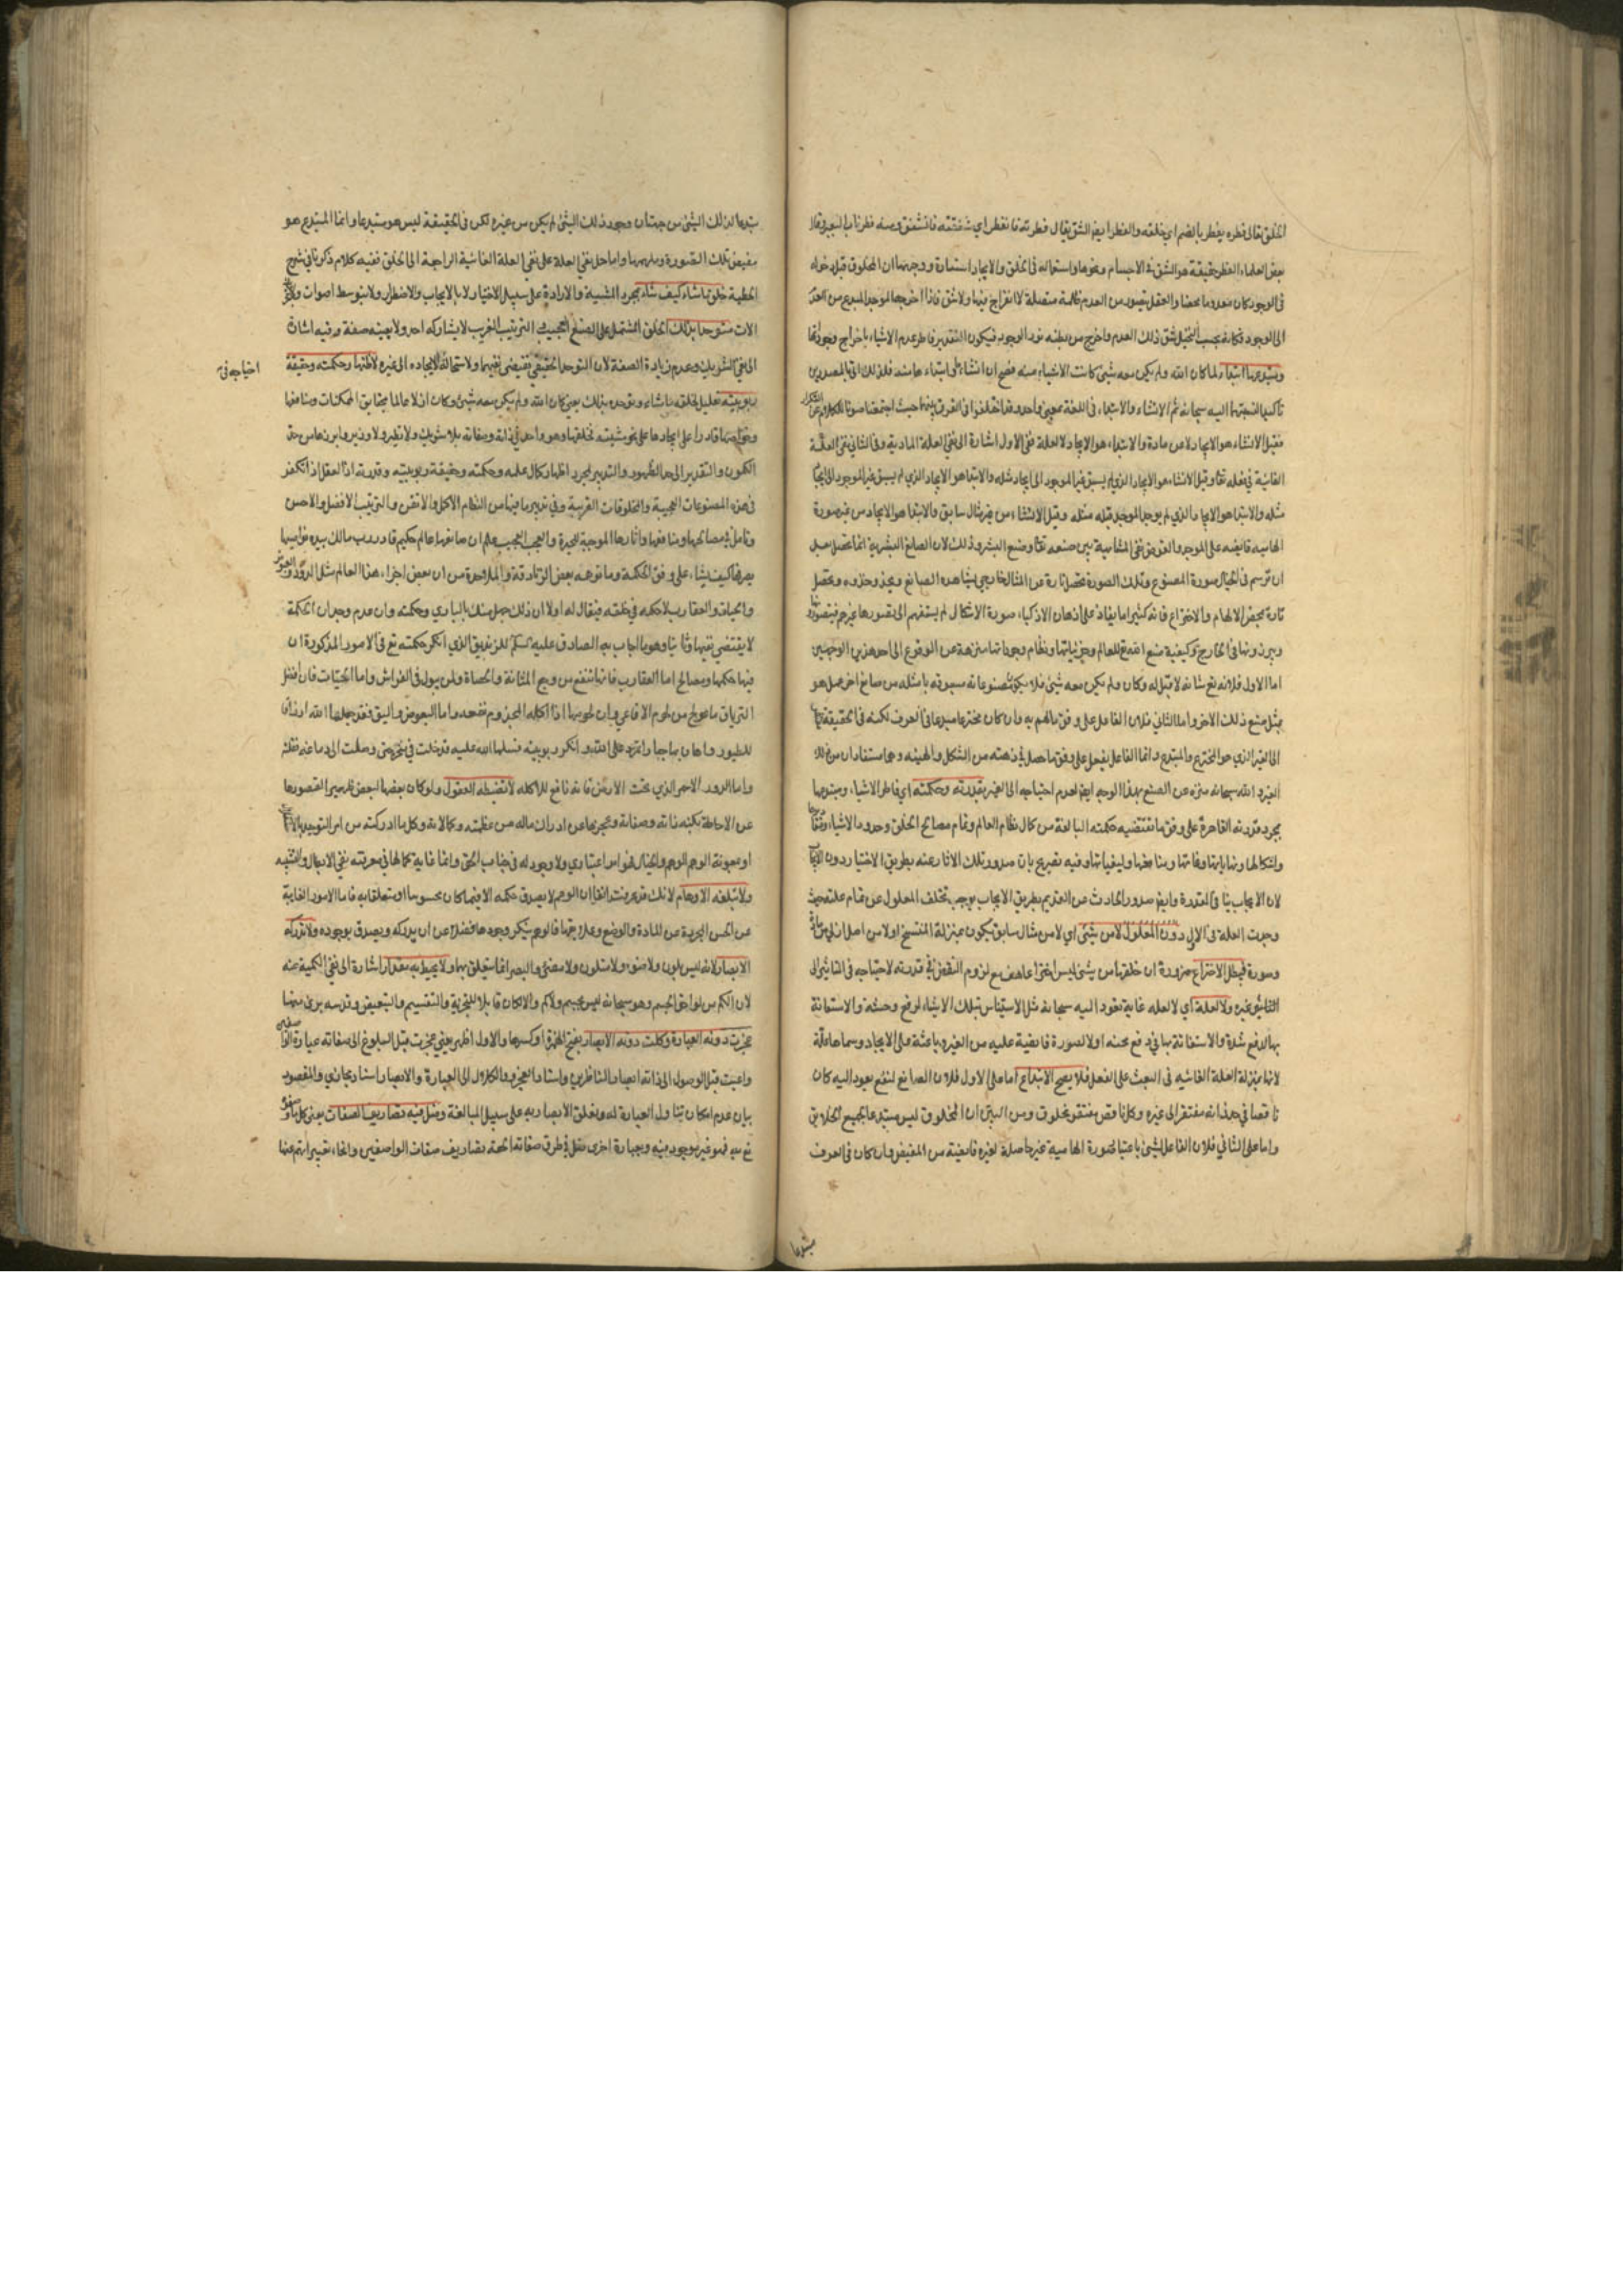 الخلق يقال فطره يفطر بالضم اي خلقه والفطر ايضا الشق يقال فطرته فانفطر اي شققته فانشق ومنه فطر ناب البعير وقال
بعض العلماء الفطر حقيقة هو الشق في الاجسام ونحوها واستعماله في الخلق والايجاد استعارة ووجهها ان المخلوق قبل دخوله
في الوجود كان معدوما محضا والعقل يتصور من العدم ظلمة متصلة لا انفراج فيها ولا شق فاذا اخرجها الموجد المبدع من العدم
الى الوجود فكانه بحسب التخيل شق ذلك العدم واخرج من بطنه نور الوجود فيكون التقدير فاطر عدم الاشياء باخراج وجوداتها
ومبتدعها ابتداء لما كان الله ولم يكن معه شيئ كانت الاشياء منه فصح ان انشاءها وابتداءها منه فلذلك اتى بالمصدرين
تاكيدا لنسبتهما اليه سبحانه ثم الانشاء والابتداء في اللغة بمعنى واحد وقد اختلفوا في الفرق بينهما حيث اجتمعا صونا للكلام عن التكرار
فقيل الانشاء هو الايجاد لا من مادة والابتداء هو الايجاد لا لعلة ففي الاول اشارة الى نفي العلة المادية وفي الثاني نفي العلة
الغائية في فعله تعالى وقيل الانشاء هو الايجاد الذي لم يسبق غير الموجد الى ايجاد مثله والابتداء هو الايجاد الذي لم يسبق غير الموجد الى ايجاد
مثله والابتداء هو الايجاد الذي لم يوجد الموجد قبله مثله وقيل الانشاء من غير مثال سابق والابتداء هو الايجاد من غير صورة
الهامية فايضة على الموجد والغرض نفي المشابهة بين صنعه تعالى وصنع البشر وذلك لان الصانع البشرية انما تحصل بعد
ان ترتسم في الخيال صورة المصنوع وتلك الصورة تحصل تارة عن المثال الخارجي يشاهده الصانع ويحذو حذوه وتحصل
تارة بمحض الالهام والاختراع فانه كثيرا ما يفاض على اذهان الاذكياء صورة الاشكال لم يسبقهم الى تصورها غيرهم فيتصورونها
ويبرزونها في الخارج وكيفية صنع الله تعالى للعالم وجزئياتها ونظام وجوداتها منزهة عن الوقوع الى احد هذين الوجهين
اما الاول فلانه تعالى شانه لا قبل له وكان ولم يكن معه شيئ فلا يكون مصنوعاته مسبوقه بامثله من صانع اخر عمل هو
بمثل صنع ذلك الاخر واما الثاني فلان الفاعل على وفق ما الهم به وان كان مخترعا مبدعا في العرف لكنه في الحقيقة
الى الغير الذي هو المخترع والمبتدع وانما الفاعل يفعل على وفق ما حصل في ذهنه من الشكل والهيئه وهما مستفادان من ذلك
الغير والله سبحانه منزه عن الصنع بهذا الوجه ايضا لعدم احتياجه الى الغير بقدرته وحكمته اي فاطر الاشياء ومبتدعها
بمجرد قدرته القاهرة على وفق ما تقتضيه حكمته البالغة من كمال نظام العالم وتمام مصالح الخلق وحدود الاشياء
واشكالها ونهاياتها وغاياتها ومنافعها وكيفياتها وفيه تصريح بان صدور تلك الاثار عنه بطريق الاختيار دون الايجاب
لان الايجاب ينافي القدرة وايضا صدور الحادث عن القديم بطريق الايجاب يوجب تخلف المعلول عن تمام علته حيث
وجدت العلة في الازل دون المعلول لا من شيئ اي لا من مثال سابق يكون بمنزلة المنتسخ او لا من اصل ازلي من
وصورة فيبطل الاختراع ضرورة ان خلقها من شيئ ليس اختراعا هف مع لزوم النقص في قدرته لاحتياجه في التاثير الى
التاثير غيره ولا لعلة اي لا لعله غاية تعود اليه سبحانه مثل الاستيناس بتلك الاشياء لرفع وحشته والاستعانة
بها لدفع شدة والاستغاثة بها في دفع محنه او لا لصورة فايضة عليه من الغير وباعثة على الايجاد وسماها علة
لانها بمنزلة العلة الغائيه في البعث على الفعل فلا يصح الابتداع اما على الاول فلان الصانع لنفع يعود اليه كان
ناقصا في حد ذاته مفتقر الى غيره وكل ناقص مفتقر مخلوق ومن البين ان المخلوق ليس مبتدعا لجميع الخلايق
واما على الثاني فلان الفاعل لشيئ باعتبار صورة الهامية غير حاصلة لغيره فايضة من المفيض وان كان في العرف
مبتدعا
مبتدعا لذلك الشيئ من جهة ان وجود ذلك الشيئ لم يكن من غيره لكن في الحقيقة ليس هو مبتدعا وانما المبتدع هو
مفيض تلك الصورة وملهمها واما حمل نفي العلة على نفي العلة الغائية الراجعة الى الخلق ففيه كلام ذكرناه في شرح
الخطبة خلق ما شاء كيف شاء بمجرد المشية والارادة على سبيل الاختيار لا بالايجاب والاضطرار ولا بتوسط اصوات ولا
الات متوحدا بذلك الخلق المشتمل على الصنع العجيب والترتيب الغريب لا يشاركه احد ولا يعينه صفة وفيه اشارة
الى نفي الشريك وعدم زيادة الصفة لان التوحد الحقيقي يقتضي نفيهما ولاستحالة احتياجه في الايجاد الى غيره لاظهار حكمته وحقيقة
ربوبيته تعليل لخلقه ما شاء وتوحده بذلك يعني كان الله ولم يكن معه شيئ وكان ازلا عالما بحقايق الممكنات ومنافعها
وخواصها قادرا على ايجادها على نحو مشيته فخلقها وهو واحد في ذاته وصفاته بلا شريك ولا نظير ولا وزير وابرزها من حد
الكمون والتقدير الى حد الظهور والتدبير لمجرد اظهار كمال علمه وحكمته وحقيقة ربوبيته وقدرته اذ العقل اذا تفكر
في هذه المصنوعات العجيبة والمخلوقات الغريبة وفي تدبير ما فيها من النظام الاكمل والاتقن والترتيب الافضل والاحسن
وتامل في مصالحها ومنافعها واثارها الموجبة للحيرة والعجب العجيب علم ان صانعها عالم حكيم قادر رب مالك بيده نواصيها
يصرفها كيف يشاء على وفق الحكمة وما توهمه بعض الزنادقة والملاحدة من ان بعض اجزاء هذا العالم مثل الدود والبعوض
والحيات والعقارب لا حكمه في خلقه فيقال له اولا ان ذلك جهل منك بالباري وحكمته وان عدم وجدان الحكمة
لا يقتضي نفيها وثانيا وهو ما اجاب به الصادق عليه السلام للزنديق الذي انكر حكمته تعالى في الامور المذكورة ان
فيها حكمها ومصالح اما العقارب فانها تنفع من وجع المثانة والحصاة ولمن يبول في الفراش واما الحيات فان افضل
الترياق ما عولج من لحوم الافاعي وان لحومها اذا اكله المجذوم نفعه واما البعوض والبق فقد جعلها الله ارزاق
للطيور واهان بها جبارا تمرد على الله وانكر ربوبيته فسلطها الله عليه فدخلت في منخره حتى وصلت الى دماغه فقتلته
واما الدود الاحمر الذي تحت الارض فانه نافع للاكلة لا تضبطه العقول ولو كان بعضها لبعض ظهيرا لقصورها
عن الاحاطة بكنه ذاته وصفاته وعجزها عن ادراك ماله من عظمته وكمالاته وكل ما ادركته من امر التوحيد
او بمعونة الوهم والخيال فهو امر اعتباري ولا وجود له في جناب الحق وانما غاية كمالها في معرفته نفي الابطال والتشبيه
ولا تبلغه الاوهام لانك قد عرفت انفا ان الوهم لا يصدق حكمه الا فيما كان محسوسا او متعلقا به فاما الامور الغايبة
عن الحس المجردة عن المادة والوضع وعلايقها فالوهم ينكر وجودها فضلا عن ان يدركه ويصدق بوجوده ولا تدركه
الابصار لانه ليس بلون ولا ضوء ولا متلون ولا مضئ والبصر انما يتعلق بهما ولا يحيط به مقدار اشارة الى نفي الكمية عنه
لان الكم من لواحق الجسم وهو سبحانه ليس بجسم ولا كم والا لكان قابلا للتجزية والتقسيم والتبعيض وقدسه برئ منها
عجزت دونه العبارة وكلت دونه الابصار بفتح الهمزة او كسرها والاول اظهر يعني عجزت قبل البلوغ الى صفاته عبارة الواصفين
واعيت قبل الوصول الى ذاته ابصار الناظرين واسناد العجز والكلال الى العبارة والابصار اسناد مجازي والمقصود
بيان عدم امكان تناول العبارة له وتعلق الابصار به على سبيل المبالغة وضل فيه تصاريف الصفات يعني كل ما
تع به فهو غير موجود فيه وبعبارة اخرى ضل في طرق صفاته الحقة تصاريف صفات الواصفين وانحاء تعبيراتهم عنها
احتياجه في